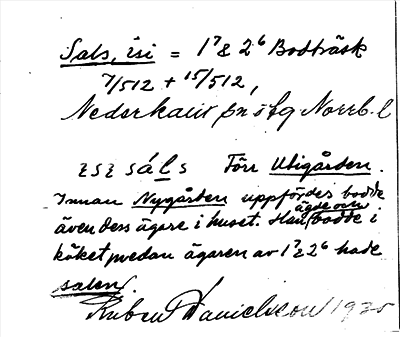 Sals, isi = 1⁷ & 2⁶ Bodträsk
7/512 + 15/512,
Nederkalix sn o tg Norrb. l
sáls Förr Utigården.
Innan Nygården uppfördes bodde
även dess ägare i huset. Han ägde och bodde i
köket medan ägaren av 1⁷ & 2⁶ hade
salen.
Ruben Danielsson 1935